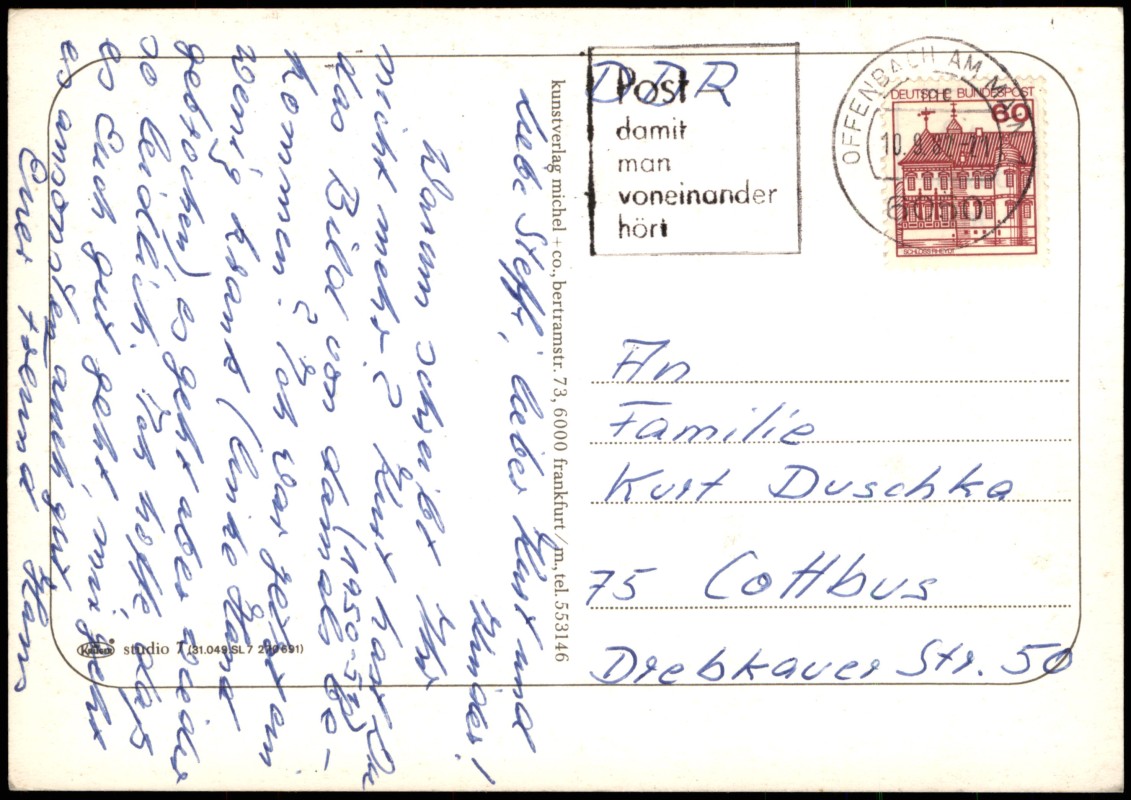 Liebe Steffi, lieber Kurt und
Kinder!
Warum schreibt Ihr
nicht mehr? Kurt hast Du
das Bild von damals (1950-52) be-
kommen? Ich war zeit ein
wenig krank (linke Hand
gebrochen) es geht aber wieder
so leidlich. Ich hoffe, daß
es Euch gut geht, mir geht
es ansonsten auch gut
Euer Freund Hans
kunstverlag michel + co., bertramstr. 73, 6000 frankfurt/m., tel. 553146
Krüger studio 7 (31.049 SL 7 270 691)
DDR
Post
damit
man
voneinander
hört
OFFENBACH AM MAIN
10.9.8
6050
DEUTSCHE BUNDESPOST
60
SCHLOSS RHEYDT
An
Familie
Kurt Duschka
75 Cottbus
Drebkauer Str. 50